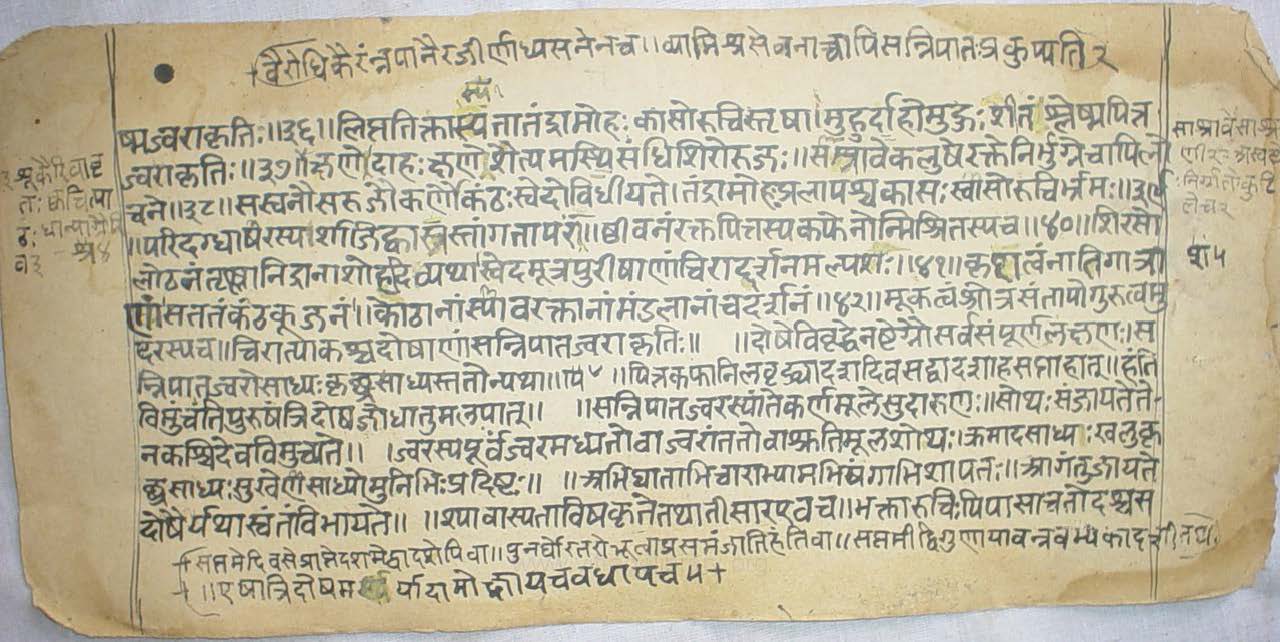 वैरोधिकैरंन्नपानैरजीर्णाध्यसनेनच।।व्यामिश्रसेवनाच्चापिसन्निपातःप्रकुप्यति२
ष्मज्वराकृतिः।।३६।।लिप्ततिक्तास्यतातंद्रामोहःकासोरुचिस्तृषा।मुहुर्दाहोमुहुःशीतंश्लेष्मपित्त
ज्वराकृतिः।।३७।।क्षणेदाहःक्षणेशैत्यमस्थिसंधिशिरोरुजः।।सास्रावेकलुषेरक्तेनिर्भुग्नेचापिलो
चने।।३८।।सस्वनौसरुजौकर्णौकंठःस्वेदोविधीयते।तंद्रामोहःप्रलापश्चकासःस्वासोरुचिर्भ्रमः।।३९
।।परिदग्धाषरस्पर्शाजिह्वास्रस्तांगतापरं।।ष्ठीवनंरक्तपित्तस्यकफेनोन्मिश्रितस्यच।।४०।।शिरसो
लोठनंतृष्णानिद्रानाशोहृदिव्यथास्वेदमूत्रपुरीषाणांचिराद्दर्शनमल्पशः।।४१।।कृशत्वंनातिगात्रा
णांसततंकंठकूजनं।।कोठानांस्यावरक्तानांमंडलानांचदर्शनं।।४२।।मूकत्वंश्रोत्रसंतापोगुरुत्वमु
दरस्यच।।चिरात्पाकश्चदोषाणांसन्निपातज्वराकृतिः।। ।।दोषेविवृद्धेनष्टेग्नौसर्वसंपूर्णलक्षणः।स
न्निपातज्वरोसाध्यःकृच्छ्रसाध्यस्ततोन्यथा।। ।।पित्तकफानिलवृद्ध्यादशदिवसद्वादशाहसप्ताहात्।।हंति
विमुचंतिपुरुषंत्रिदोषजोधातुमलपात्।। ।।सन्निपातज्वरस्यांतेकर्णमूलेसुदारुणः।।सोथःसंजायतेते
नकश्चिदेवविमुच्यते।। ।ज्वरस्यपूर्वंज्वरमध्यतोवाज्वरांततोवाश्रुतिमूलशोथः।क्रमादसाध्यःखलुकृ
च्छ्रसाध्यःसुखेनसाध्योमुनिभिःप्रदिष्टः।। ।।अभिघाताभिचाराभ्यामभिषंगाभिशापतः।।आगंतुर्जायते
दोषैर्यथास्वंतंविभायते।। ।।श्यावास्यताविषकृतेतथातीसारएवच।।भक्तारुचिःपिपासाचतोदश्चस
सप्तमेदिवसेप्राप्तेदशमेद्वादशेपिवा।।पुनर्घोरतरोभूत्वाप्रसमंजातिहंतिवा।।सप्तमीद्विगुणायावन्नवम्येकादशीतथा
।।एषात्रिदोषमर्यादामोक्षायचवधायच५